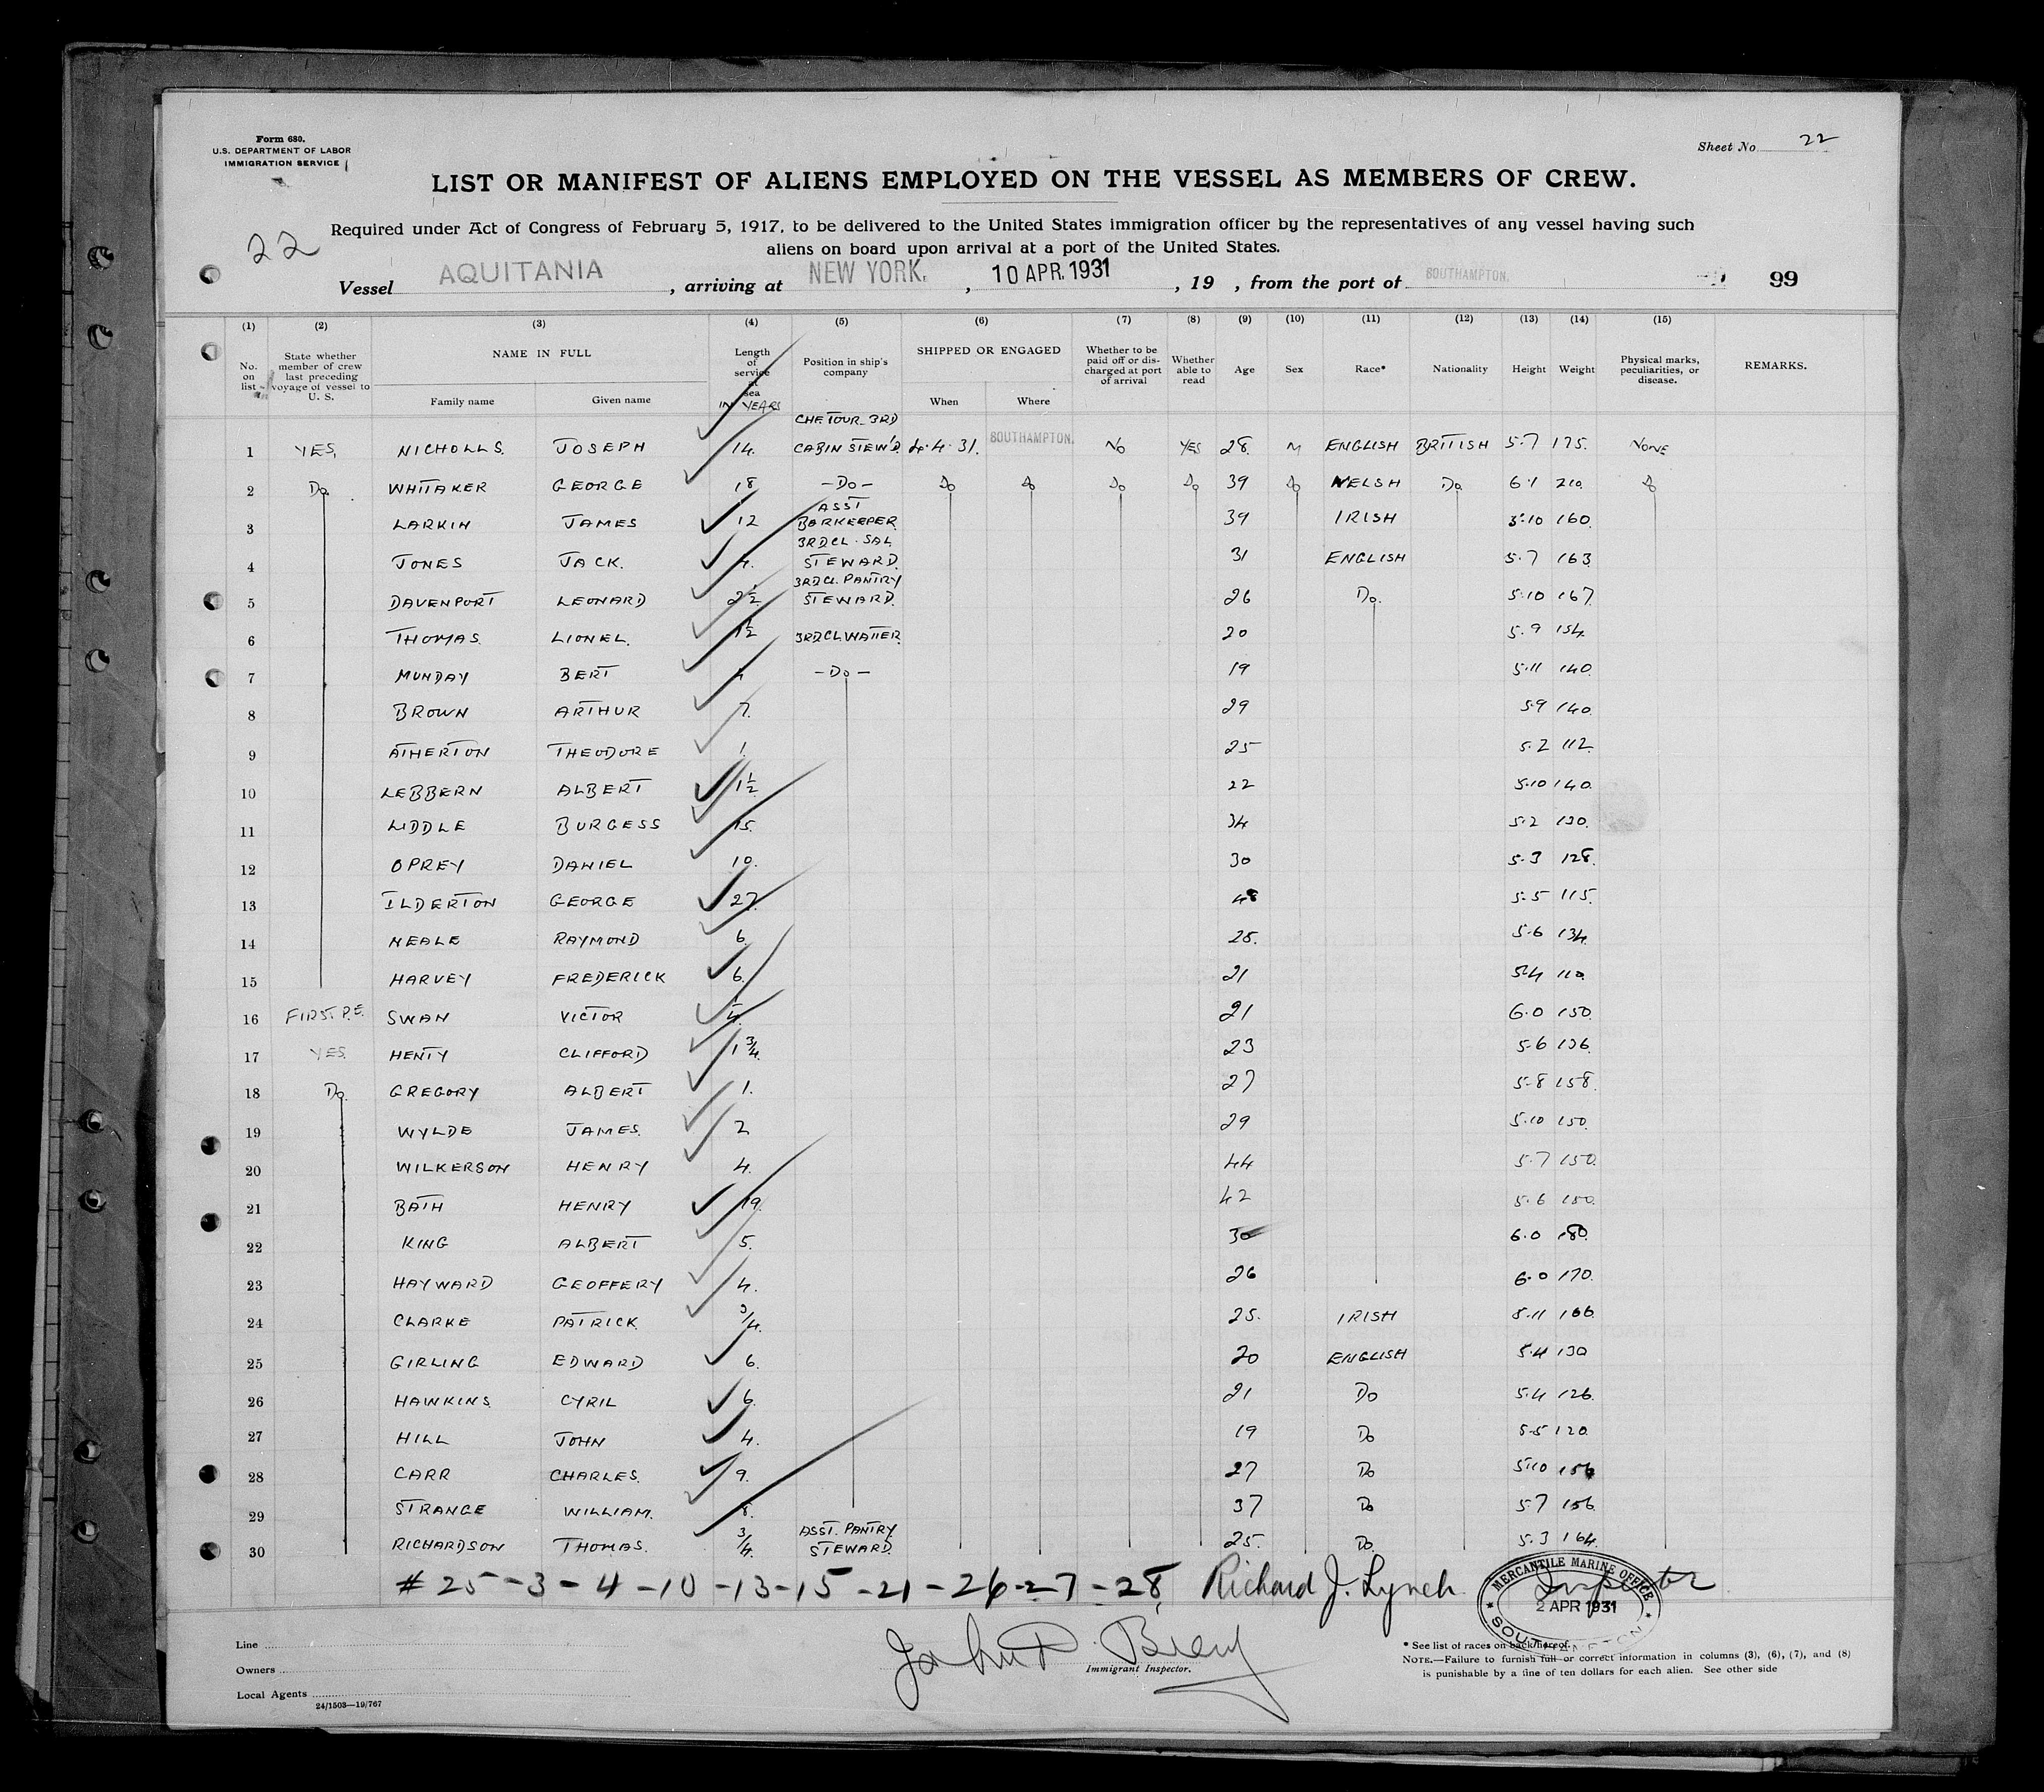 Form 680.
U.S. DEPARTMENT OF LABOR
IMMIGRATION SERVICE
Sheet No. 22
LIST OR MANIFEST OF ALIENS EMPLOYED ON THE VESSEL AS MEMBERS OF CREW.
Required under Act of Congress of February 5, 1917, to be delivered to the United States immigration officer by the representatives of any vessel having such
aliens on board upon arrival at a port of the United States.
22
Vessel AQUITANIA, arriving at NEW YORK, 10 APR. 1931, 19 , from the port of SOUTHAMPTON. 99
(1) (2) (3) (4) (5) (6) (7) (8) (9) (10) (11) (12) (13) (14) (15)
No. on list State whether member of crew last preceding voyage of vessel to U. S. NAME IN FULL Family name Given name Length of service at sea IN YEARS Position in ship's company SHIPPED OR ENGAGED When Where Whether to be paid off or discharged at port of arrival Whether able to read Age Sex Race* Nationality Height Weight Physical marks, peculiarities, or disease. REMARKS.
1 YES, NICHOLLS. JOSEPH 14. CHF. TOUR. 3RD CABIN STEW'D. 4.4.31. SOUTHAMPTON. NO YES 28. M ENGLISH BRITISH 5.7 175. NONE
2 Do. WHITAKER GEORGE 18 -Do- Do Do Do Do 39 Do WELSH Do 6.1 210. Do
3 LARKIN JAMES 12 ASST BARKEEPER 39 IRISH 5.10 160.
4 JONES JACK. 4. 3RD CL. SAL STEWARD. 31 ENGLISH 5.7 163
5 DAVENPORT LEONARD 2½ 3RD CL. PANTRY STEWARD. 26 Do. 5.10 167
6 THOMAS LIONEL. 1½ 3RD CL WAITER. 20 5.9 154
7 MUNDAY BERT -Do- 19 5.11 140.
8 BROWN ARTHUR 7. 29 5.9 140.
9 ATHERTON THEODORE 1. 25 5.2 112.
10 LEBBERN ALBERT 1½ 22 5.10 140.
11 LIDDLE BURGESS 15. 34 5.2 130.
12 OPREY DANIEL 10. 30 5.3 128.
13 ILDERTON GEORGE 27. 48 5.5 115.
14 NEALE RAYMOND 6. 28. 5.6 134
15 HARVEY FREDERICK 6. 21 5.4 110.
16 FIRST P.E. SWAN VICTOR 21 6.0 150.
17 YES. HENTY CLIFFORD 1¾. 23 5.6 136.
18 Do. GREGORY ALBERT 1. 27 5.8 158.
19 WYLDE JAMES. 2 29 5.10 150.
20 WILKERSON HENRY 4. 44 5.7 150.
21 BATH HENRY 19. 42 5.6 150.
22 KING ALBERT 5. 30 6.0 180.
23 HAYWARD GEOFFERY 4. 26 6.0 170.
24 CLARKE PATRICK. ¾. 25. IRISH 5.11 166.
25 GIRLING EDWARD 6. 20 ENGLISH 5.4 130
26 HAWKINS CYRIL 6. 21 Do 5.4 126.
27 HILL JOHN 4. 19 Do 5.5 120.
28 CARR CHARLES. 9. 27 Do 5.10 156
29 STRANGE WILLIAM. 8. 37 Do 5.7 156.
30 RICHARDSON THOMAS. ¾. ASST. PANTRY STEWARD. 25. Do. 5.3 164.
# 25-3-4-10-13-15-21-26-27-28, Richard J. Lynch Inspector
MERCANTILE MARINE OFFICE
2 APR 1931
SOUTHAMPTON
Line
Owners
Local Agents
24/1503—19/767
Immigrant Inspector.
* See list of races on back hereof.
NOTE.—Failure to furnish full or correct information in columns (3), (6), (7), and (8)
is punishable by a fine of ten dollars for each alien. See other side